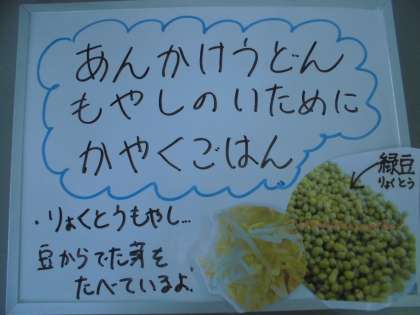 あんかけうどん
もやしのいために
かやくごはん
緑豆
りょくとう
・りょくとうもやし…
豆からでた芽を
たべているよ!